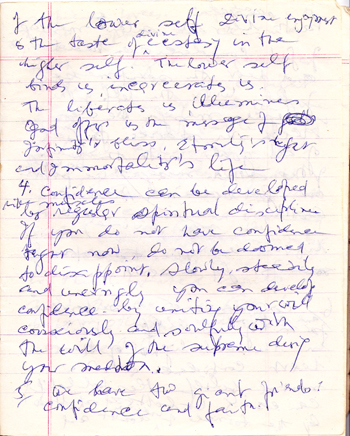 of the lower self Divine enjoyment
is the taste of divine ecstasy in the
higher self. The lower self
binds us incarcerates us.
Th liberates us illumines
God offers us the message of
Infinity's bliss, Eternity's
and Immortality's life
4. Confidence can be developed
by regular spiritual discipline
If you do not have confidence
right now, do not be doomed
to disappoint. Slowly, steadily
and unerringly you can develop
confidence by uniting your will
consciously and soulfully with
the will of the supreme during
your meditation.
5, We have two giant friends:
confidence and faith.